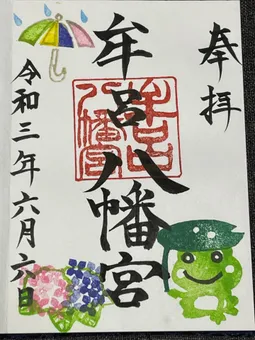 奉拝
牟呂八幡宮
牟呂八幡宮
令和三年六月六日